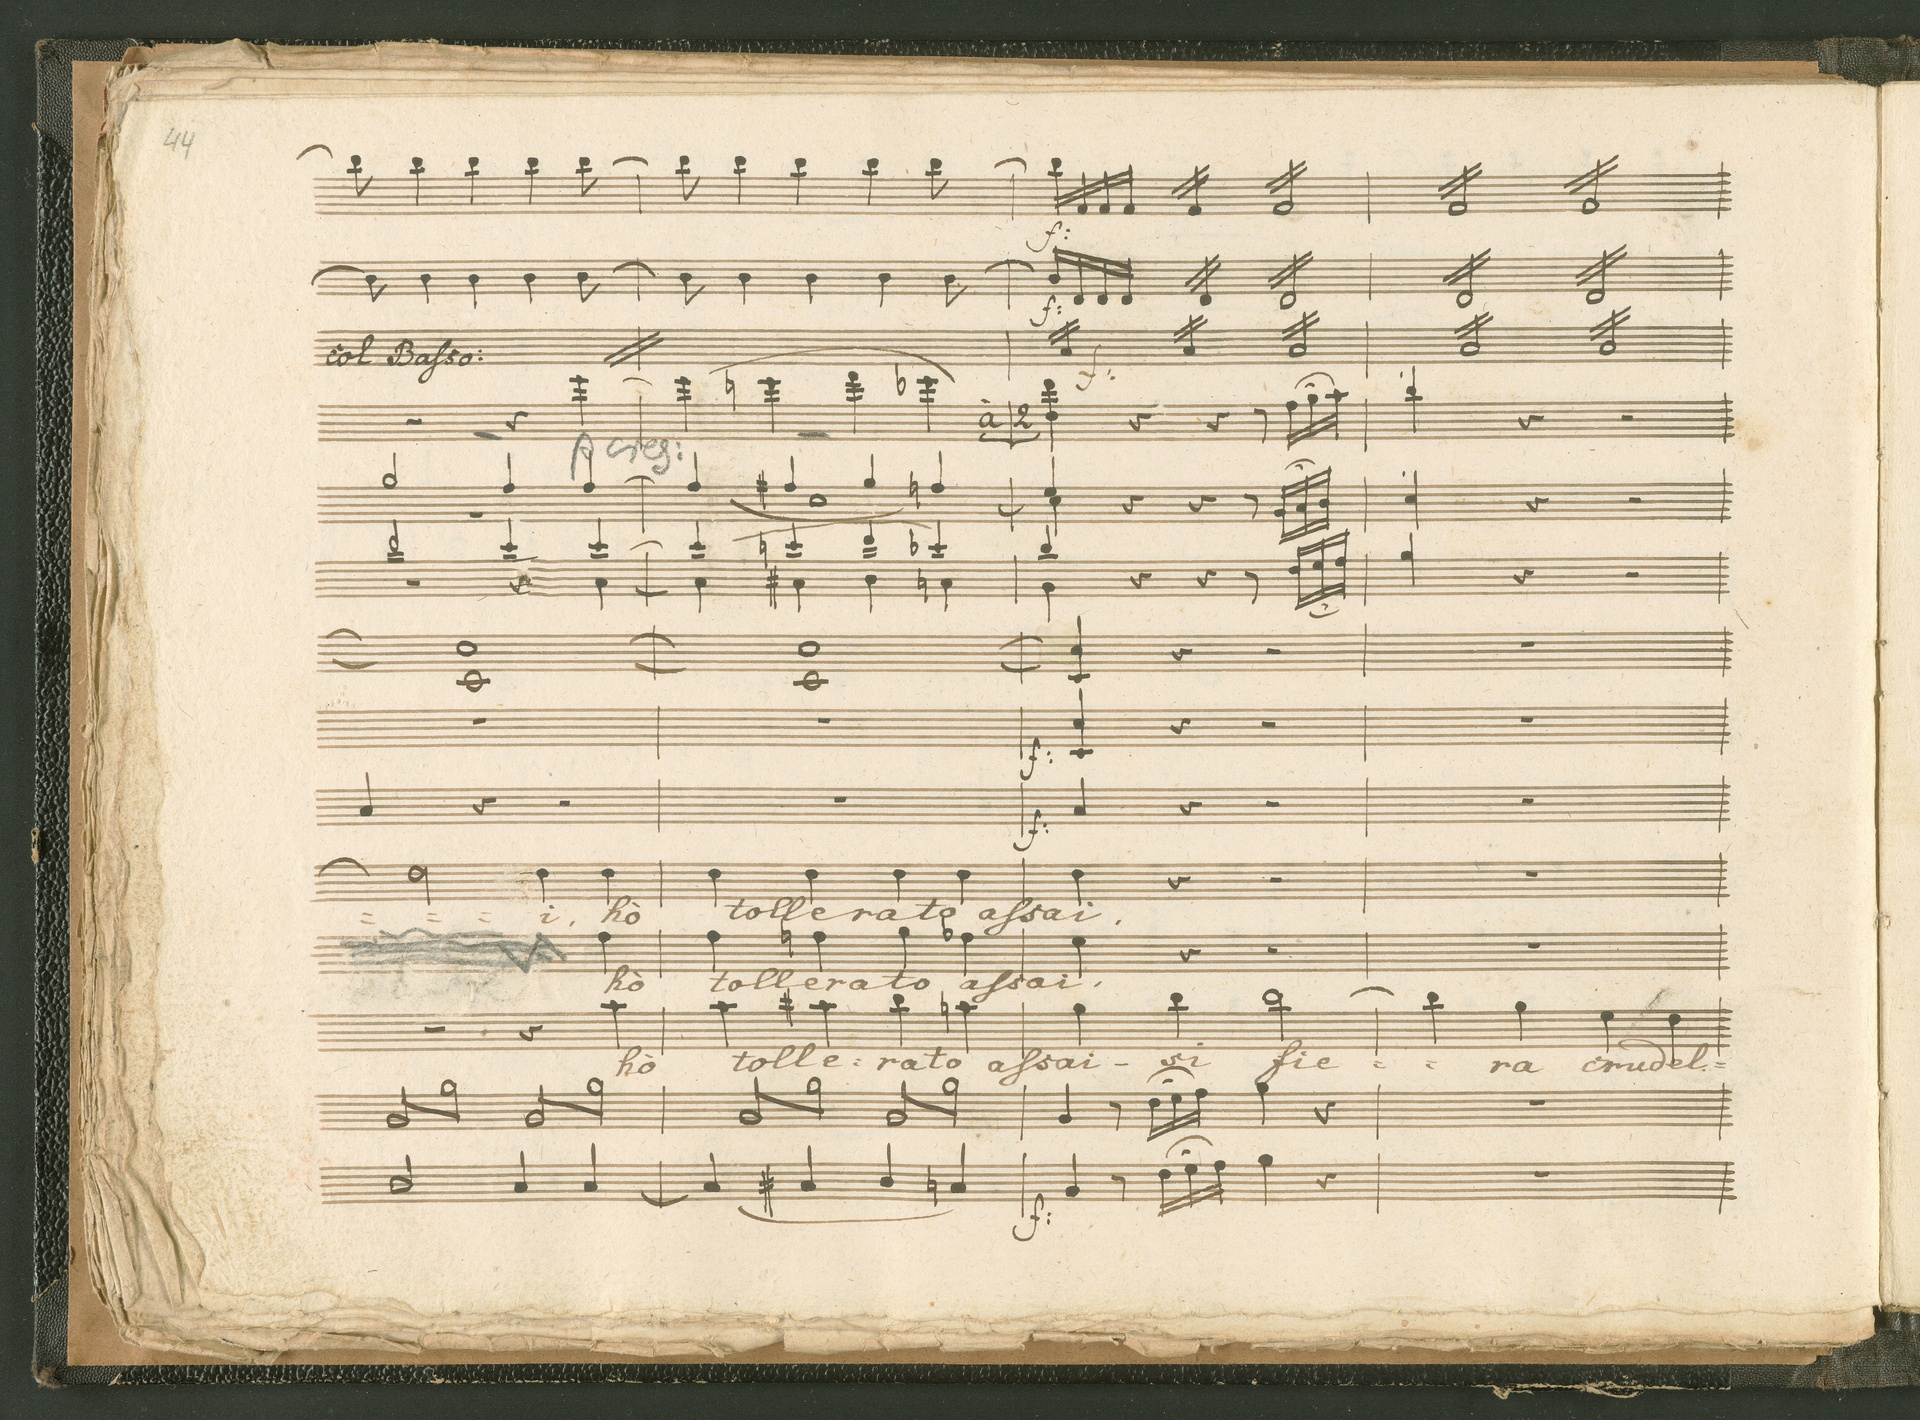 44
f:
f:
col Basso:
f:
à 2
f:
f:
= = = i, hò tollerato assai.
hò tollerato assai.
hò tolle=rato assai- si fie = = ra crudel=
f: